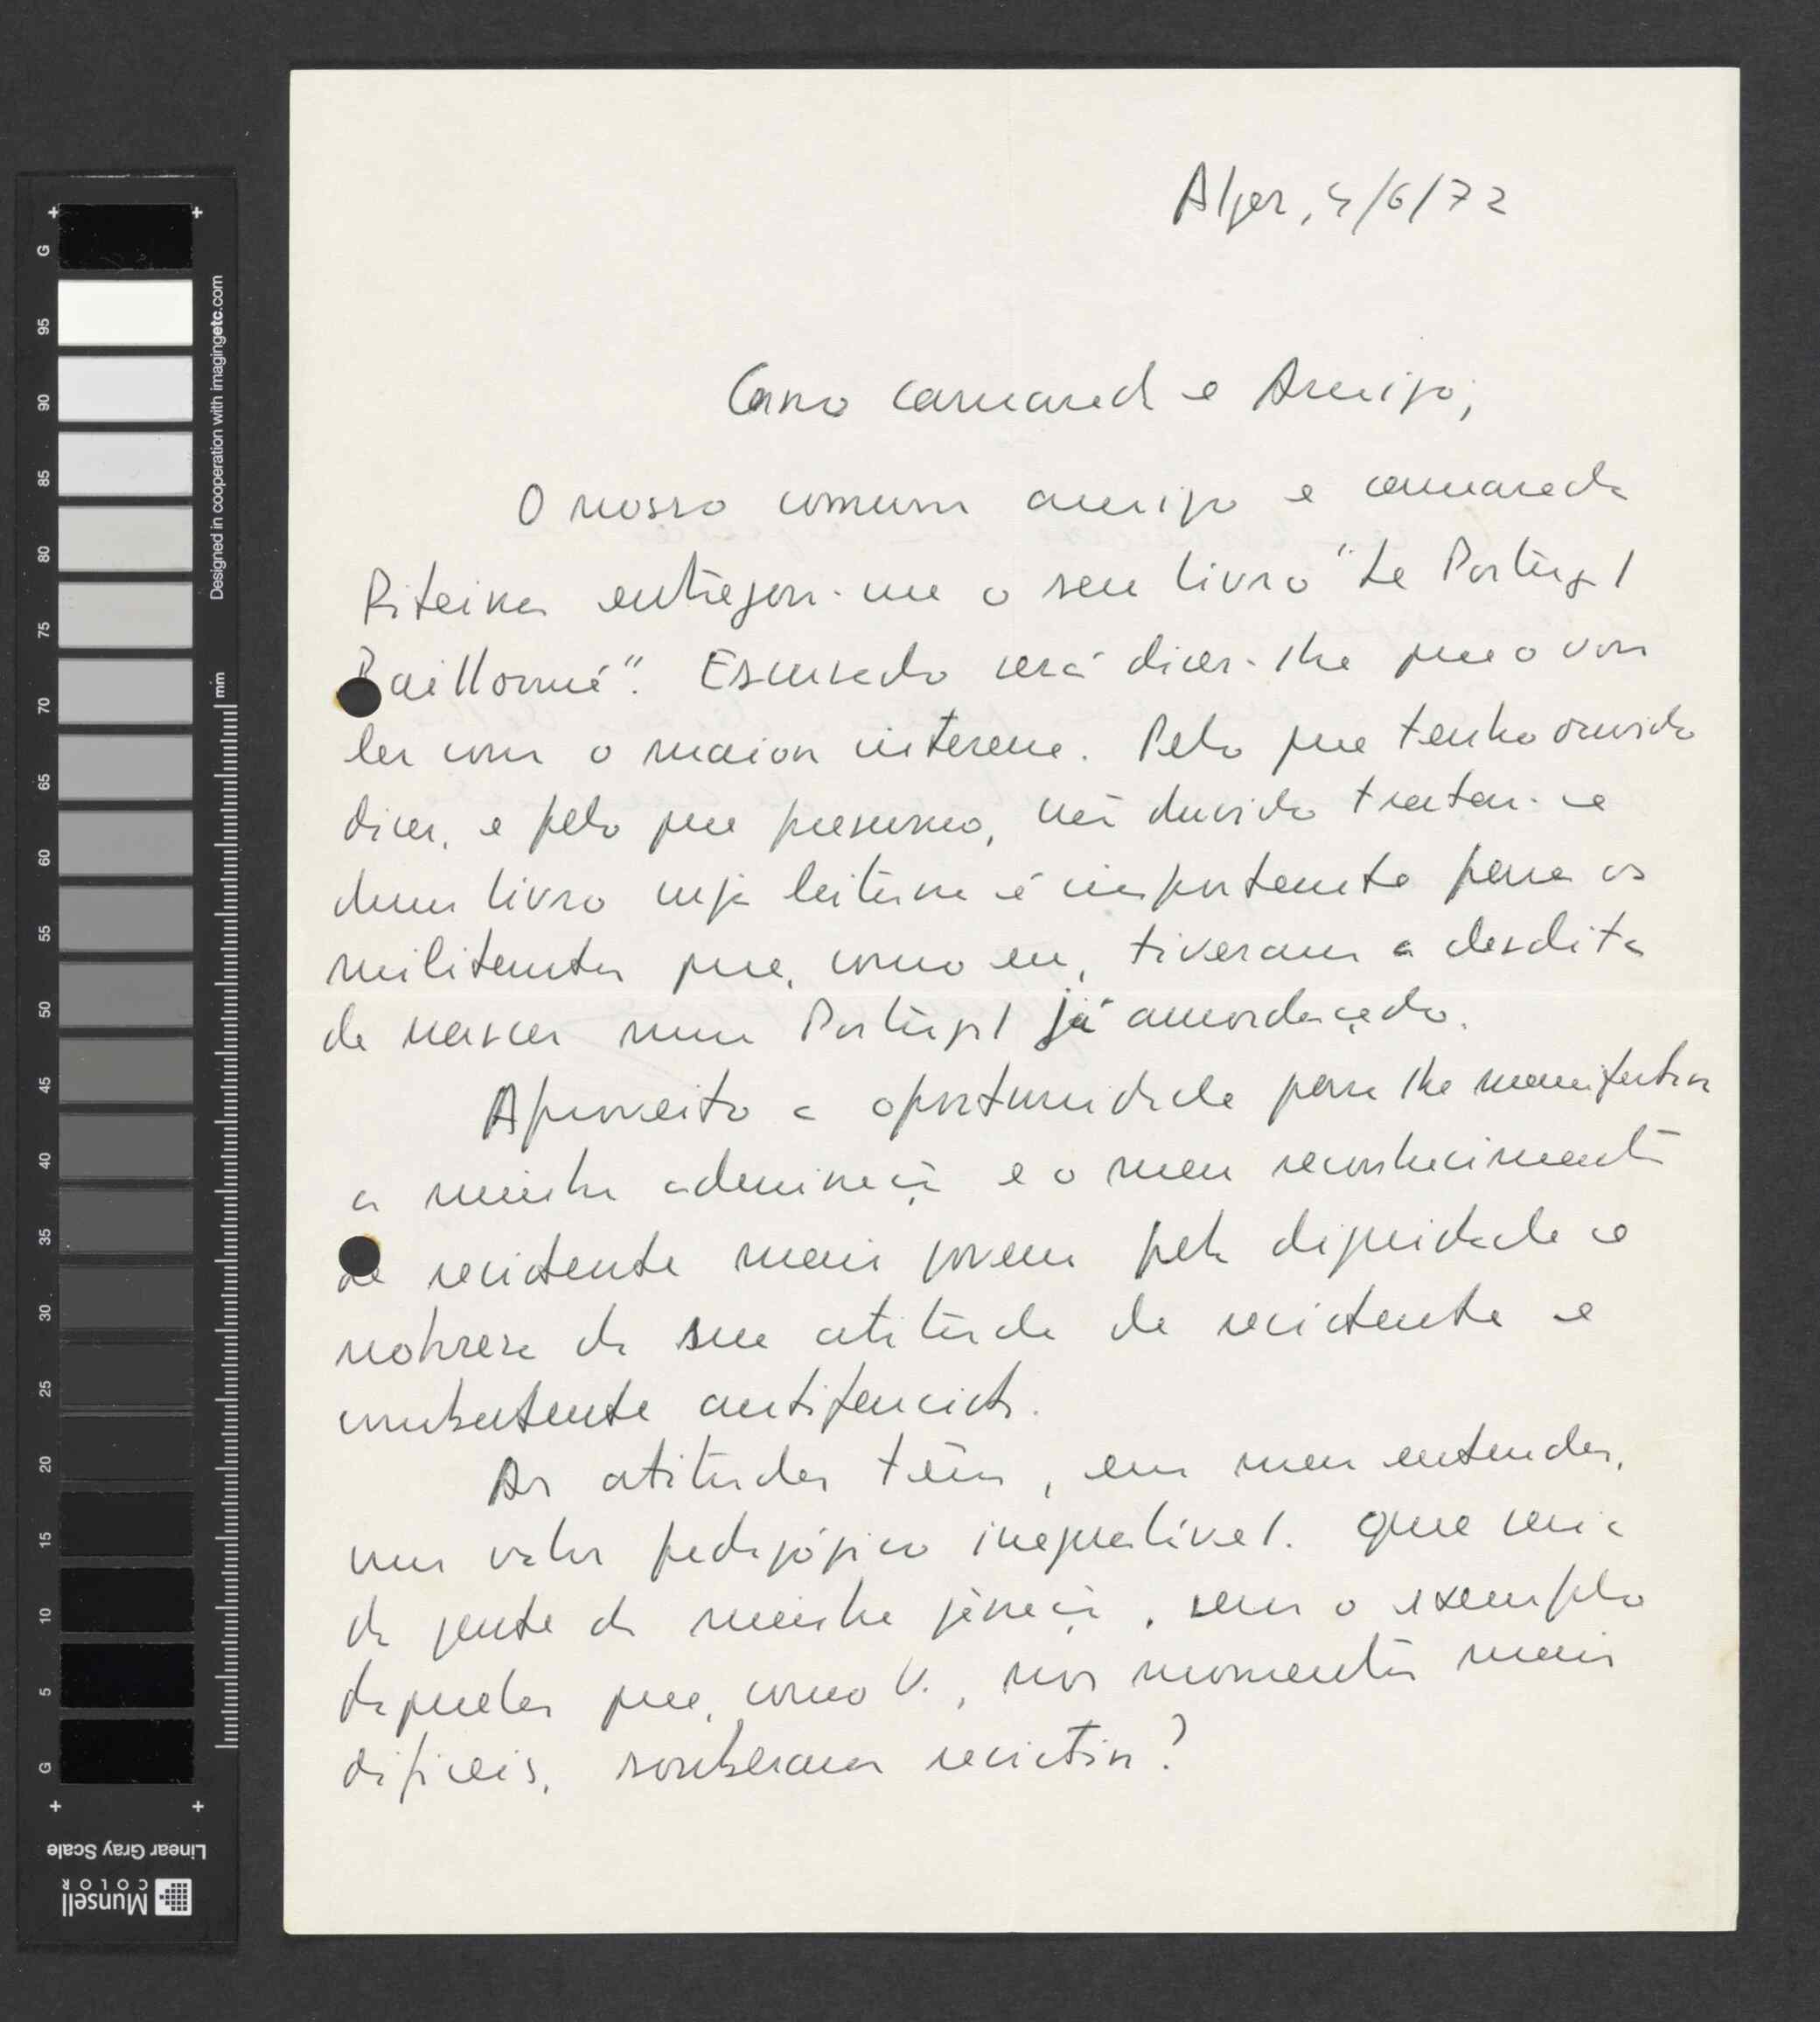 Alger, 4/6/72
Caro camarada e Amigo,
O nosso comum amigo e camarada
Piteira entregou-me o seu livro "Le Portugal
Baillonné". Escusado será dizer-lhe que o vou
ler com o maior interesse. Pelo que tenho ouvido
dizer, e pelo que presumo, não duvido tratar-se
dum livro cuja leitura é importante para os
militantes que, como eu, tiveram a desdita
de nascer num Portugal já amordaçado.
Aproveito a oportunidade para lhe manifestar
a minha admiração e o meu reconhecimento
de resistente mais jovem pela dignidade e
nobreza da sua atitude de resistente e
combatente antifascista.
As atitudes têm, em meu entender,
um valor pedagógico inegualável. Que seria
da gente da minha geração, sem o exemplo
daqueles que, como V., nos momentos mais
difíceis, souberam resistir?
G 95 90 85 80 75 70 65 60 55 50 45 40 35 30 25 20 15 10 5 G
mm
Designed in cooperation with imagingetc.com
Linear Gray Scale
Munsell
COLOR